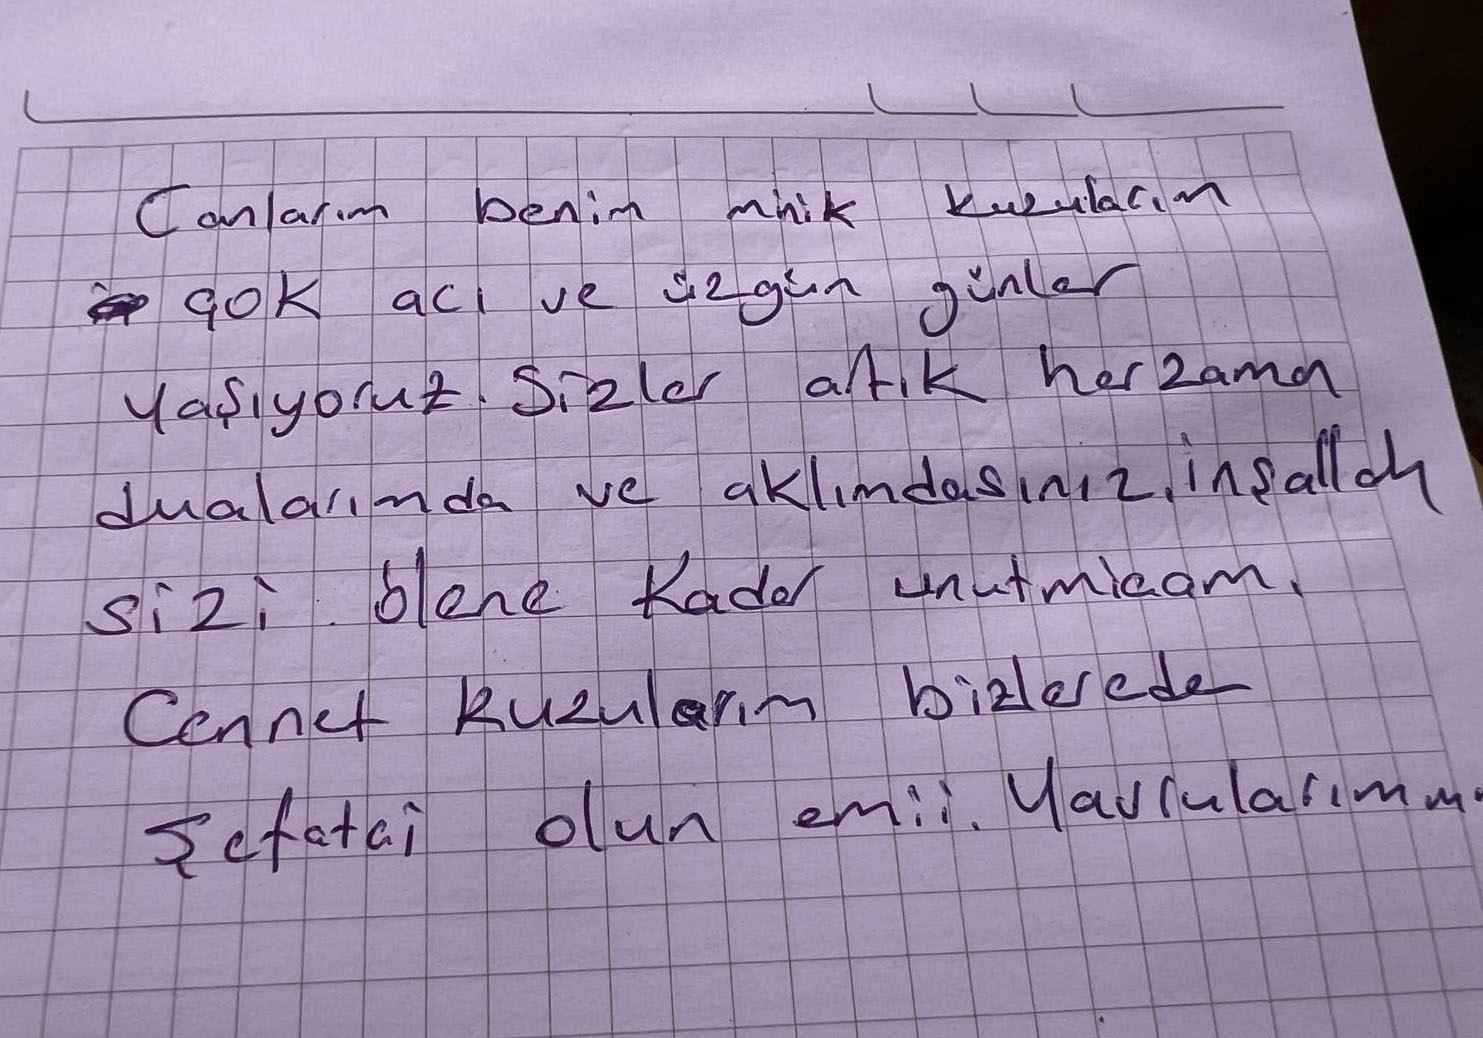 Canlarım benim minik kuzularım
çok acı ve üzgün günler
yaşıyoruz. Sizler artık her zaman
dualarımda ve aklımdasınız. inşallah
sizi ölene kader unutmicam.
Cennet kuzularım bizlerede
şefatci olun emii. Yavrularımm.